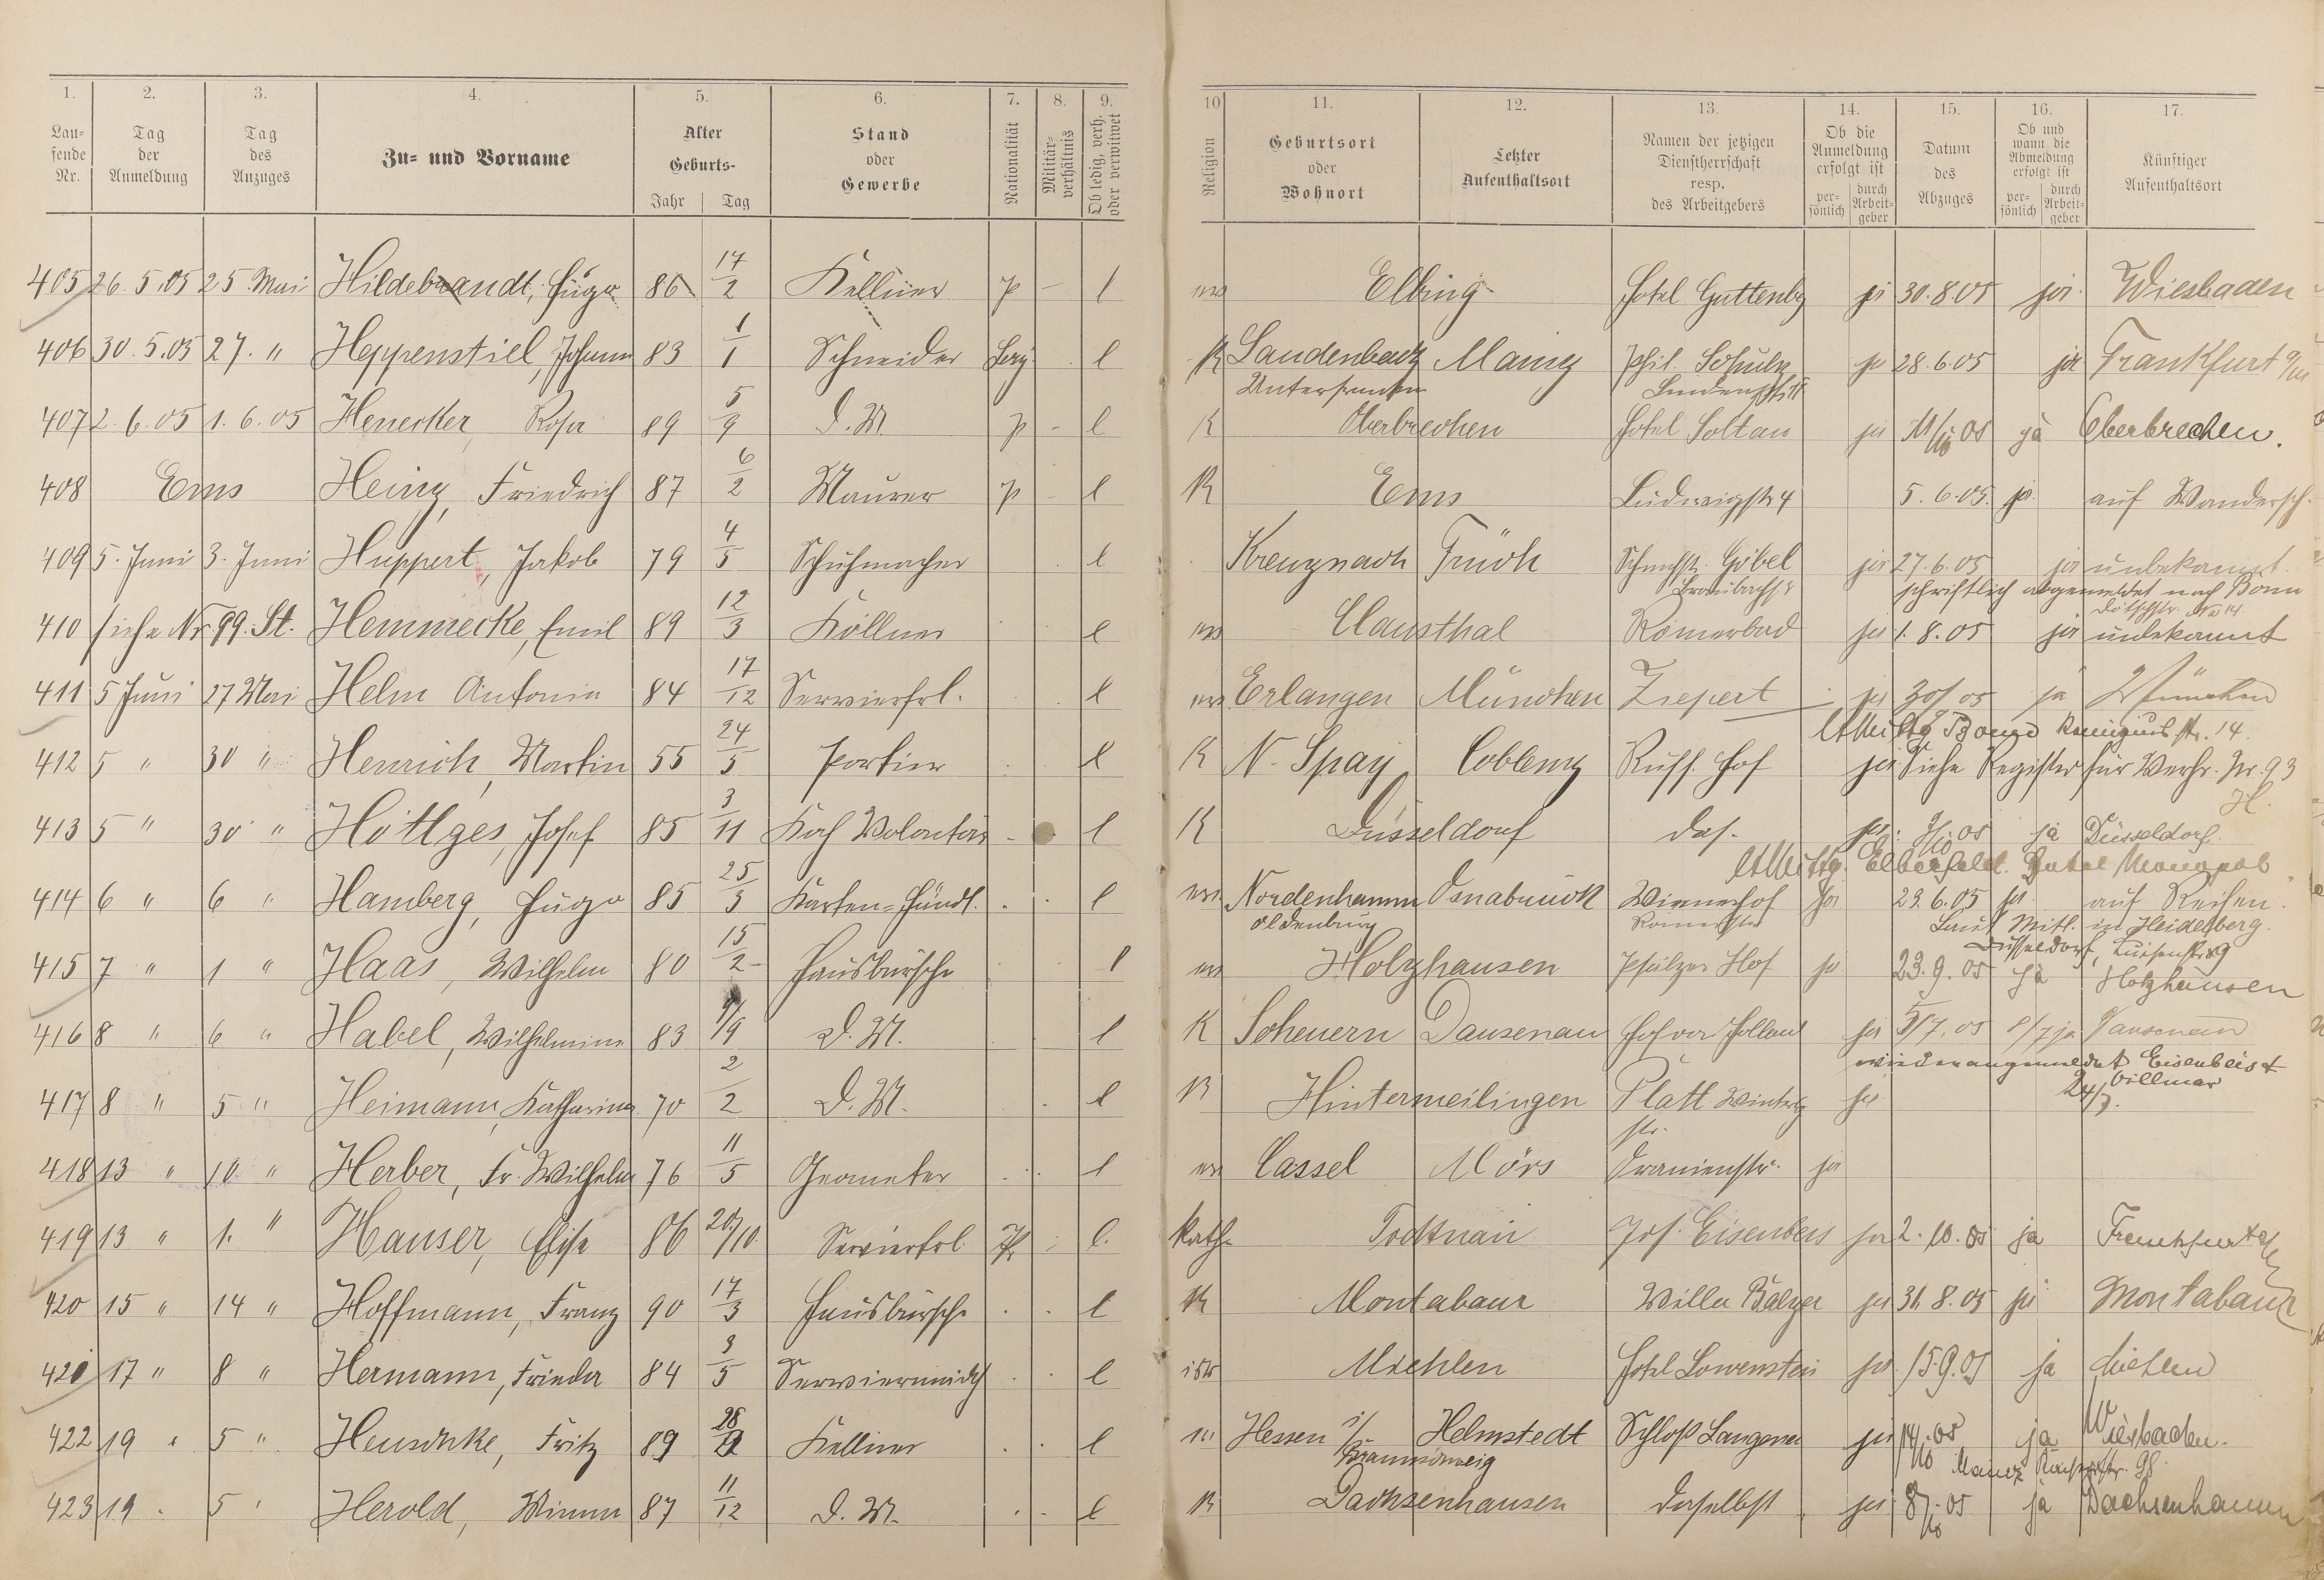 1. 2. 3. 4. 5. 6. 7. 8. 9. 10 11. 12. 13. 14. 15. 16. 17.
Lau-
fende
Nr.
Tag
der
Anmeldung
Tag
des
Anzuges
Zu- und Vorname
Alter
Geburts-
Jahr Tag
Stand
oder
Gewerbe
Nationalität
Militär-
verhältnis
Ob ledig, verh.
oder verwitwet
Religion
Geburtsort
oder
Wohnort
Letzter
Aufenthaltsort
Namen der jetzigen
Dienstherrschaft
resp.
des Arbeitgebers
Ob die
Anmeldung
erfolgt ist
per-
sönlich
durch
Arbeit-
geber
Datum
des
Abzuges
Ob und
wann die
Abmeldung
erfolgt ist
per-
sönlich
durch
Arbeit-
geber
Künftiger
Aufenthaltsort
405 26.5.05 25. Mai Hildebrandt, Hugo 86 17/2 Kellner p – l ev Elbing Hotel Guttenbg ja 30.8.05 ja Wiesbaden
406 30.5.05 27. " Heppenstiel, Johann 83 1/1 Schneider Bay l K Laudenbach Mainz Phil. Schulz ja 28.6.05 ja Frankfurt a/m
Unterfranken
407 2.6.05 1.6.05 Henecker Rosa 89 5/9 D.M. p – l K Oberbrechen Hotel Soltau ja 11/10 05 ja Oberbrechen.
408 Ems Heinz, Friedrich 87 6/2 Maurer p – l K Ems Ludwigstr 4 5.6.05. ja auf Wandersch.
409 5. Juni 3. Juni Huppert, Jakob 79 4/5 Schuhmacher l Kreuznach Schuhm. Göbel ja 27.6.05 ja unbekannt.
schriftlich abgemeldet nach Bonn
410 siehe Nr. 99. St. Hemmecke, Emil 89 12/3 Köllner l ev Clausthal Römerbad ja 1.8.05 ja unbekannt
411 5 Juni 27 Mai Helm Antonie 84 17/12 Servierfrl. l ev Erlangen München Ziepert ja 30/9 05 ja München
412 5 " 30 " Henrich, Martin 55 24/5 Portier l K N. Spay Coblenz Russ. Hof ja Siehe Register für Verhr. Nr. 93
H.
413 5 " 30 " Höttges, Josef 85 3/11 Koch Volontär – l K Düsseldorf das. ja 05 ja Düsseldorf.
Lt Mittlg. Elberfeld. Hotel Monopol
414 6 " 6 " Hamberg, Hugo 85 25/3 Karten=Händl. l ev. Nordenhamm Osnabrück Wienerhof ja 23.6.05 ja auf Reisen.
Oldenburg Römerstr
Laut Mitl. in Heidelberg.
415 7 " 1 " Haas, Wilhelm 80 15/2 Hausbursche l ev Holzhausen Pfälzer Hof ja 23.9.05 ja Holzhausen
416 8 " 6 " Habel, Wilhelmine 83 9/9 D.M. l K Scheuern Dausenau Hof von Holland ja 5/7.05 8/7 ja Dausenau
wieder angemeldet Eisenbeis &
Villmar
24/7.
417 8 " 5 " Heimann, Katharina 70 2/2 D.M. l K Hintermeilingen Platt Wintersbg ja
str.
418 13 " 10 " Herber, Fr. Wilhelm 76 11/5 Geometer l ev Cassel Mörs Oranienstr. ja
419 13 " 1. " Hauser, Elise 86 20/10 Servierfrl. l. kath. Todtnau Jos. Eisenbeis ja 2.10.05 ja Frankfurt
420 15 " 14 " Hoffmann, Franz 90 17/3 Hausbursche l K Montabaur Villa Balzer ja 31.8.05 ja Montabaur
421 17 " 8 " Hermann, Frieda 84 3/5 Serviermädch l isr Miehlen Hotel Löwenstein ja 15.9.05 ja Miehlen
422 19 " 5 " Henschke, Fritz 89 28 Kellner l ev Hessen i/ Helmstedt Schloß Langenau ja 14/10.05 ja Wiesbaden.
Braunschweig
423 19 " 5 " Herold, Minna 87 11/12 D.M. l K Dachsenhausen daselbst ja 8/10 05 ja Dachsenhausen